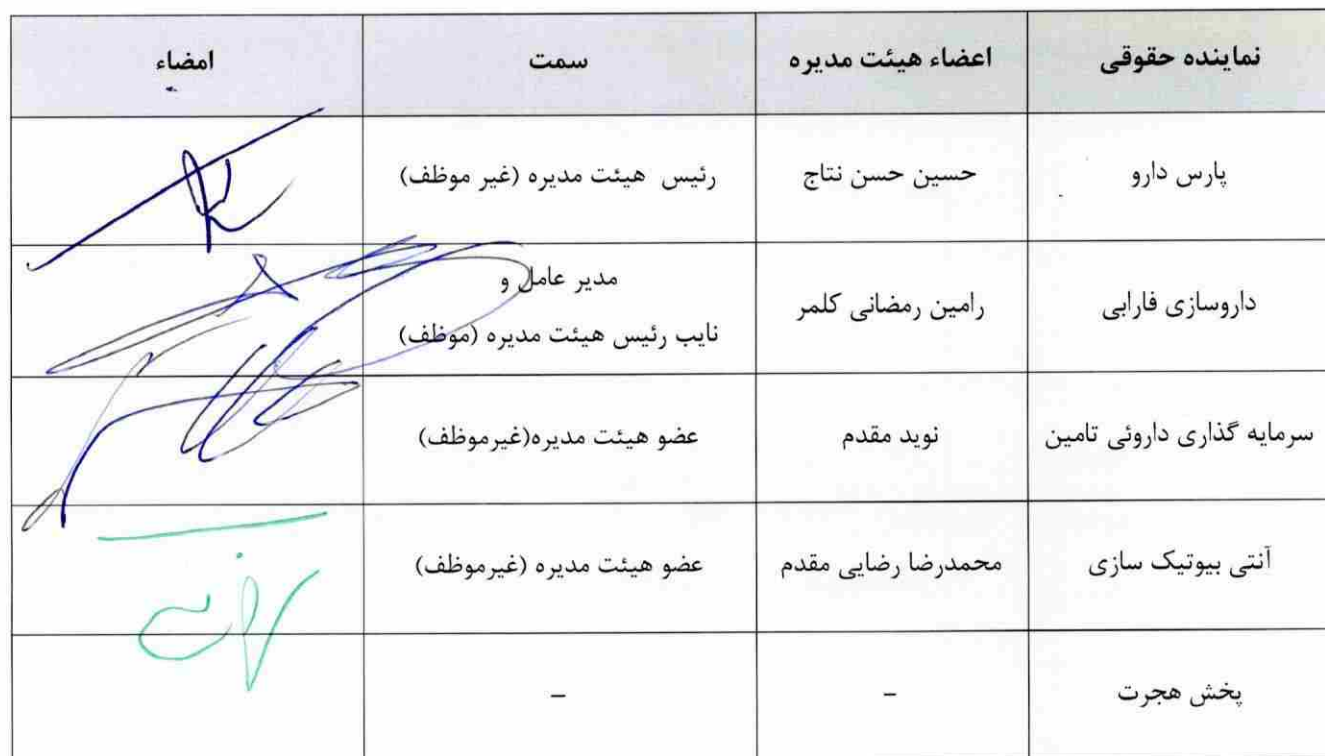 نماینده حقوقی اعضاء هیئت مدیره سمت امضاء
پارس دارو حسین حسن نتاج رئیس هیئت مدیره (غیر موظف)
داروسازی فارابی رامین رمضانی کلمر مدیر عامل و
نایب رئیس هیئت مدیره (موظف)
سرمایه گذاری داروئی تامین نوید مقدم عضو هیئت مدیره(غیرموظف)
آنتی بیوتیک سازی محمدرضا رضایی مقدم عضو هیئت مدیره (غیرموظف)
پخش هجرت – –